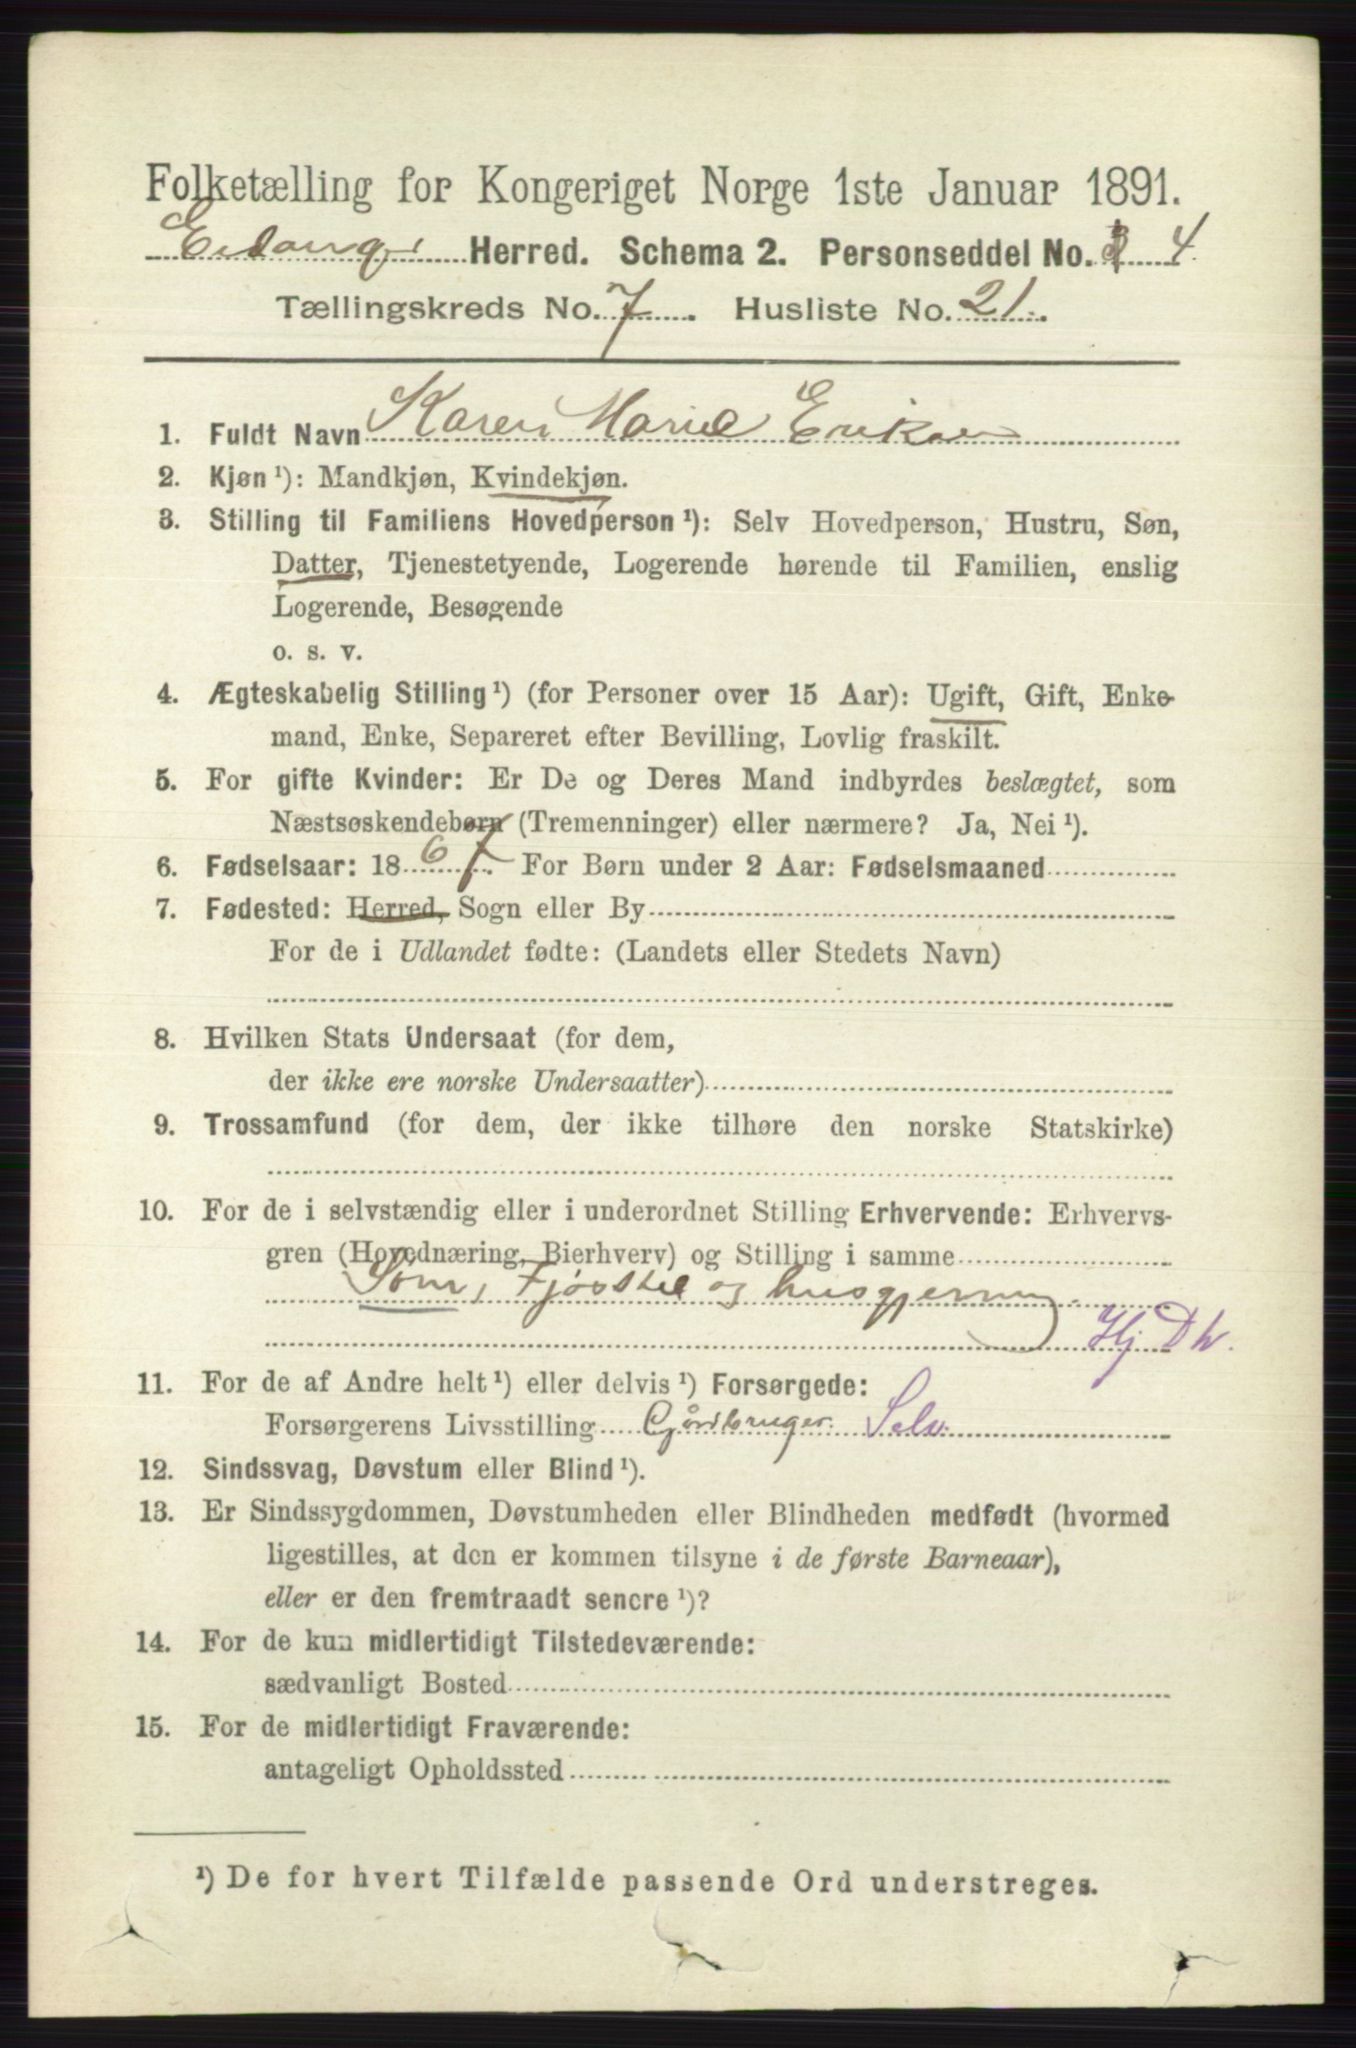 Folketælling for Kongeriget Norge 1ste Januar 1891.
Eidanger Herred. Schema 2. Personseddel No. 4.
Tællingskreds No. 7. Husliste No. 21.
1. Fuldt Navn Karen Marie Eriksen
2. Kjøn ¹): Mandkjøn, Kvindekjøn.
3. Stilling til Familiens Hovedperson ¹): Selv Hovedperson, Hustru, Søn,
Datter, Tjenestetyende, Logerende hørende til Familien, enslig
Logerende, Besøgende
o. s. v.
4. Ægteskabelig Stilling ¹) (for Personer over 15 Aar): Ugift, Gift, Enke-
mand, Enke, Separeret efter Bevilling, Lovlig fraskilt.
5. For gifte Kvinder: Er De og Deres Mand indbyrdes beslægtet, som
Næstsøskendebørn (Tremenninger) eller nærmere? Ja, Nei ¹).
6. Fødselsaar: 1867. For Børn under 2 Aar: Fødselsmaaned
7. Fødested: Herred, Sogn eller By
For de i Udlandet fødte: (Landets eller Stedets Navn)
8. Hvilken Stats Undersaat (for dem,
der ikke ere norske Undersaatter)
9. Trossamfund (for dem, der ikke tilhøre den norske Statskirke)
10. For de i selvstændig eller i underordnet Stilling Erhvervende: Erhvervs-
gren (Hovednæring, Bierhverv) og Stilling i samme
Søm, Fjøsstel og husgjerning.
Hj Dh.
11. For de af Andre helt ¹) eller delvis ¹) Forsørgede:
Forsørgerens Livsstilling Gårdbruger. Selv.
12. Sindssvag, Døvstum eller Blind ¹).
13. Er Sindssygdommen, Døvstumheden eller Blindheden medfødt (hvormed
ligestilles, at den er kommen tilsyne i de første Barneaar),
eller er den fremtraadt senere ¹)?
14. For de kun midlertidigt Tilstedeværende:
sædvanligt Bosted
15. For de midlertidigt Fraværende:
antageligt Opholdssted
¹) De for hvert Tilfælde passende Ord understreges.